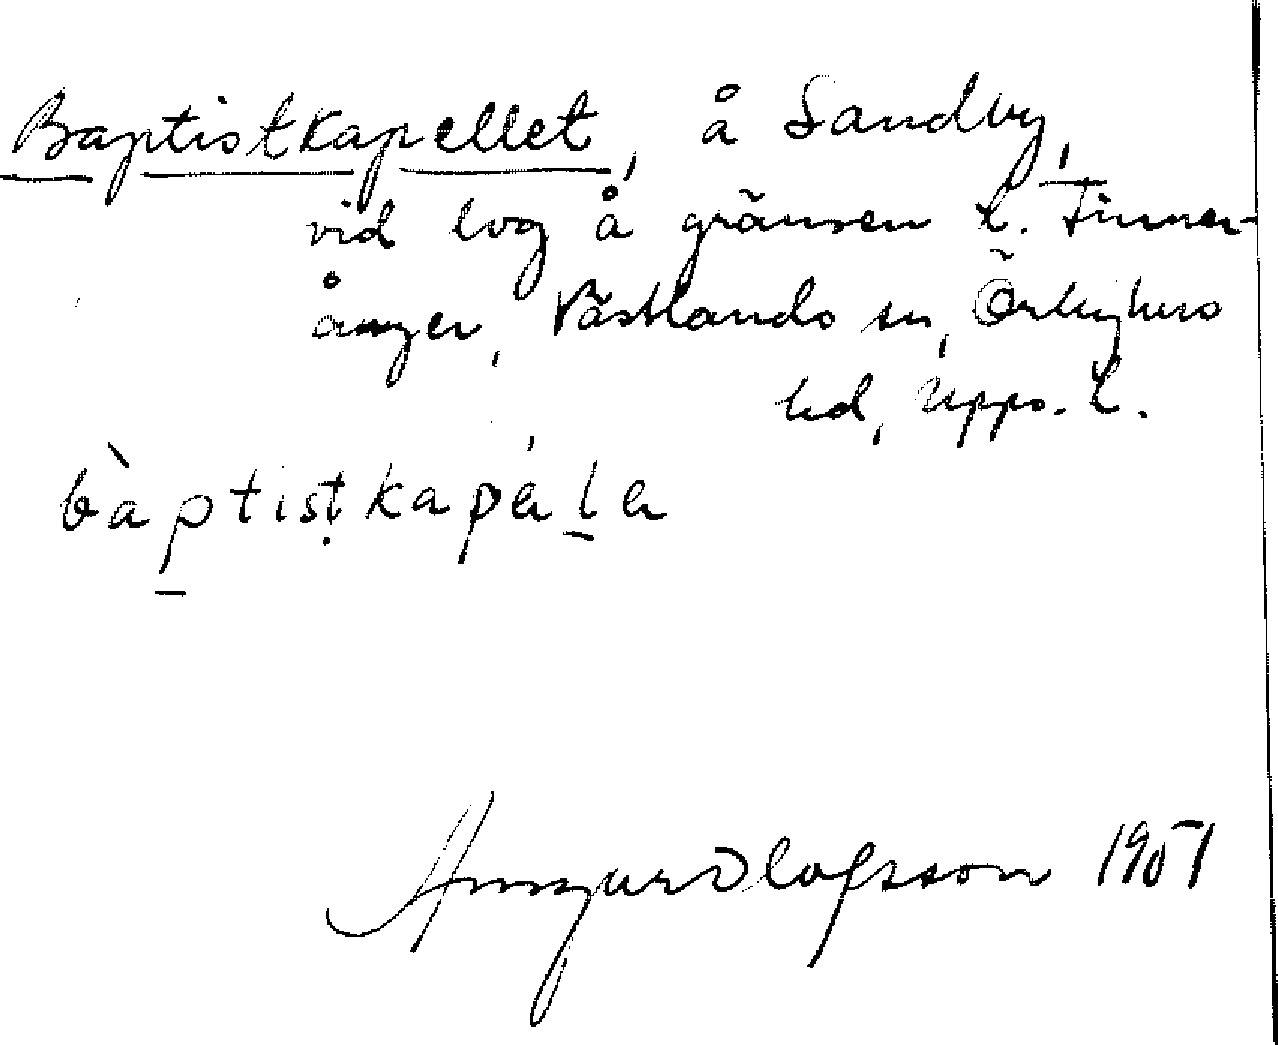 Baptistkapellet, å Sandby,
vid lvg å gränsen t. Finner-
ånger, Västlands sn, Örbyhus
hd, Upps. l.
bàptistkapäla
Olofsson 1951